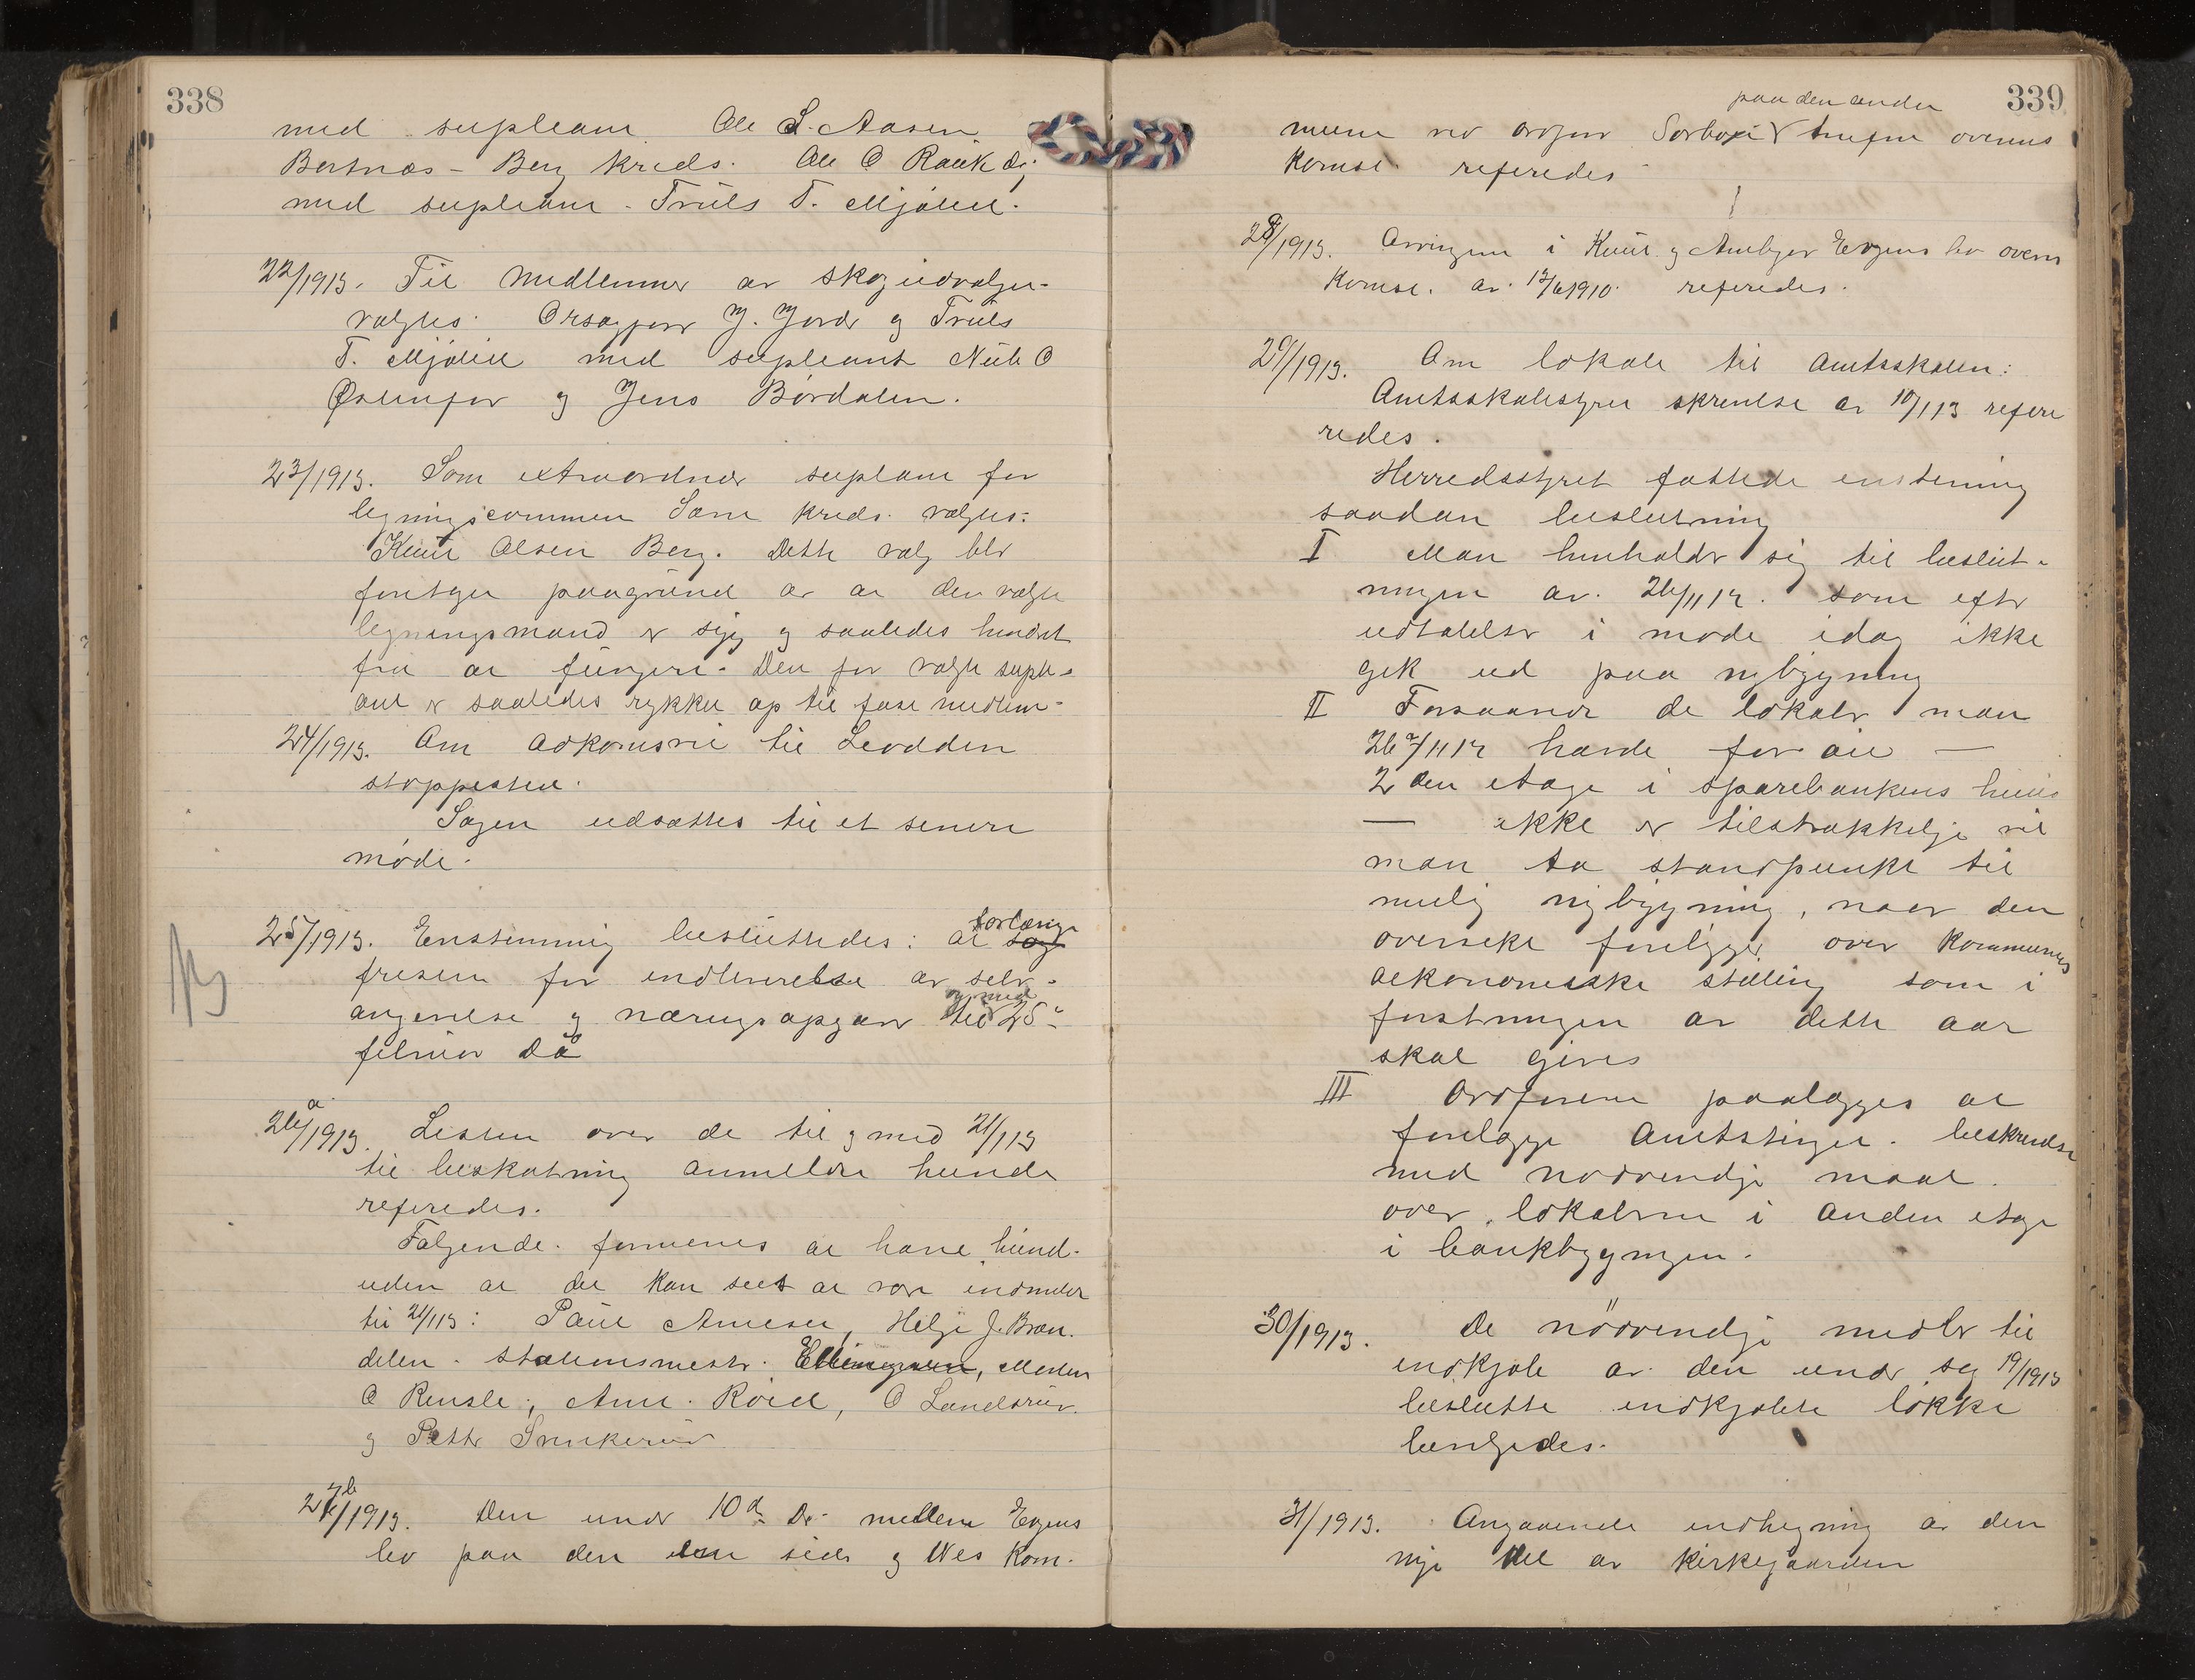 338
med supleant Ole S. Aasen
Bortnæs - Berg kreds. Ole O Rauk dy
med supleant - Truls T. Mjølid.
22/1913. Til medlemmer av skogudvalge
valgtes: Ordfører J. Jord og Truls
T. Mjølid med supleant Nils O
Østenfor og Jens Bördalen.
23/1913. Som extraordnær suplant for
legningscommen Søre kreds valgtes:
Knut Olsen Berg. Dette valg blr
foretget paagrund av at den valgte
legningsmand er syg og saaledes hindret
fra at fungere. Den før valgte suple-
ant er saaledes rykket op til fast medlem-
24/1913. Om adkomsvei til Levdden
stoppested.
Sagen udsættes til et senere
møde.
25/1913. Enstemmig besluttedes: at forlænge
fresten for indleverelse av selv-
angivelse og næringsopgave til og med 25
februar då
26a/1913. Listen over de til og med 21/1 13
til beskatning anmeldte hunde
referedes.
Følgende formenes at have hund
uden at det kan sees at være indmeldt
til 21/1 13: Paul Arnesen, Helge J. Bræn.
delen. stationsmestr. Ellingsen, Morten
O Rensle, Arne Röed, O Landsrud.
og Petter Svenkerud
27b/1913. Den under 10d Ds mellem Eggens
lev paa den ene side og Nes kom-
339
paa den anden
mune ved ordfør trufne overens
komst referedes
28/1913. i Knut og overens
komst av 12/6 1910 referedes.
29/1913. Om lokale til amtsskolen:
Amtsskolestyrets skrivelse av 10/1 13 refere
redes.
Herredsstyret fattede enstemig
saadan beslutning
I Man henholdr sig til beslut-
ningen av 26/11 12. som eftr
udtalelsr i møde idag ikke
gik ud paa nybygning
II Forsaavidt de lokaler man
26/11 12 havde for øie —
2 den etage i sparebankens hus
— ikke er tilstrækkelige vil
man ta standpunkt til
mulig nybygning, naar den
oversikt foreligger over kommunens
økonomiske stilling som i
forstningen av dette aar
skal gives
III Ordføreren paalægges at
forelægge Amtstinget beskrivelse
med nødvendige maal
over lokalerne i anden etage
i bankbygningen.
30/1913. De nödvendige midler til
indkjøb av den under sag 19/1913
beslutte indkjøbte løkke
bevilgedes.
31/1913. Angaaende indhegning av den
nye del av kirkegaarden